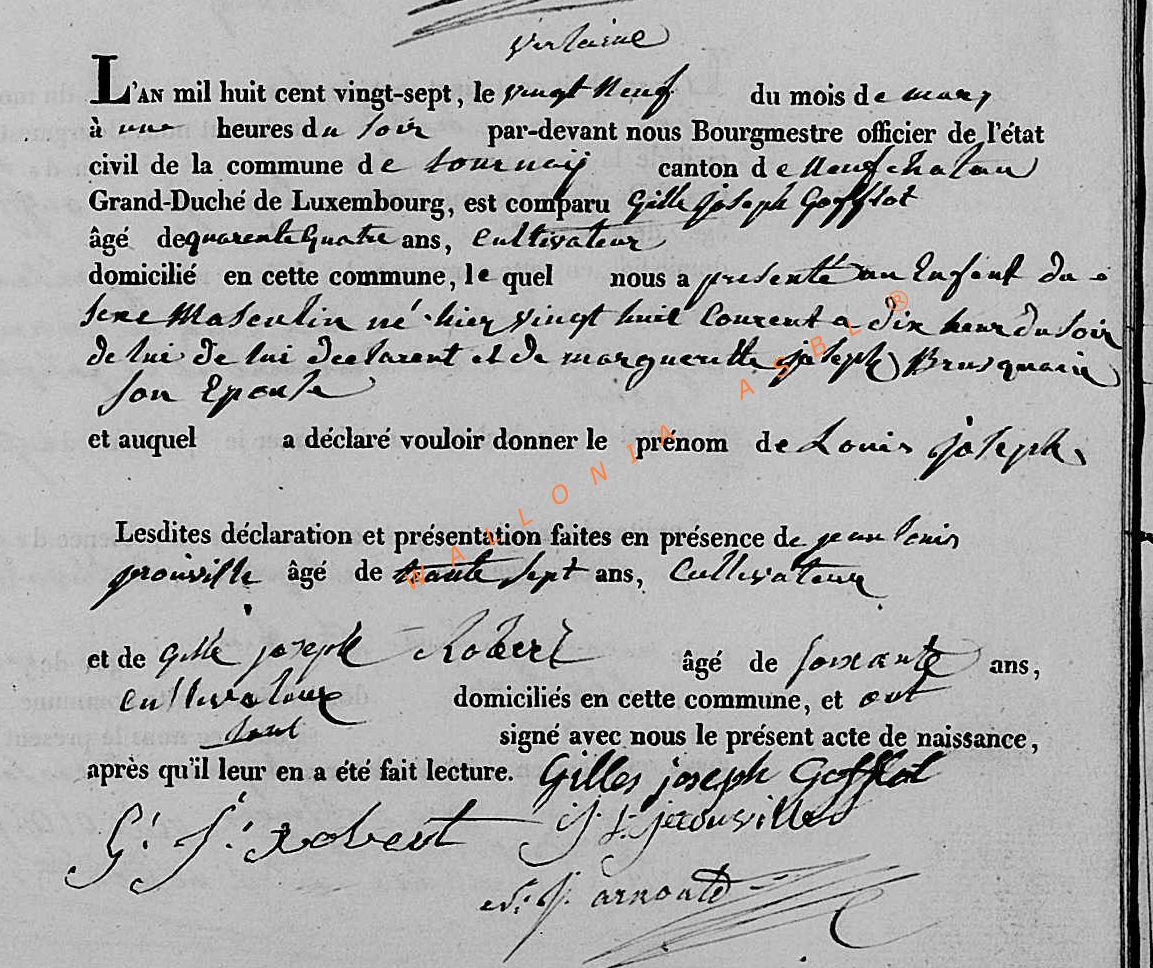 verlaine
L'AN mil huit cent vingt-sept, le vingt Neuf du mois de mars
à une heures du soir par-devant nous Bourgmestre officier de l'état
civil de la commune de tournay canton de Neufchateau
Grand-Duché de Luxembourg, est comparu Gille joseph Gofflot
âgé de quarente Quatre ans, Cultivateur
domicilié en cette commune, le quel nous a presenté un Enfent du
sexe Masculin né hier vingt huit Courent a dix heur du soir
de lui de lui declarent et de marguerette joseph
son Epouse
et auquel a déclaré vouloir donner le prénom de Louis joseph
Lesdites déclaration et présentation faites en présence de jean louis
jerouville âgé de trante sept ans, Cultivateur
et de Gille joseph Robert âgé de soixante ans,
Cultivateur domiciliés en cette commune, et ont
signé avec nous le présent acte de naissance,
après qu'il leur en a été fait lecture. Gilles joseph Gofflot
G. J. Robert J. L. jerouville
arnould
WALLONIA ASBL ®